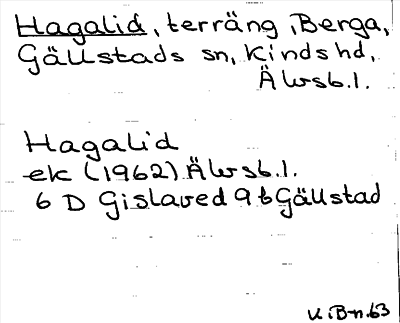 Hagalid, terräng, Berga,
Gällstads sn, Kinds hd,
Älvsb. l.
Hagalid
ek (1962) Älvsb. l.
6 D Gislaved 9 b Gällstad
K. B-n. 63